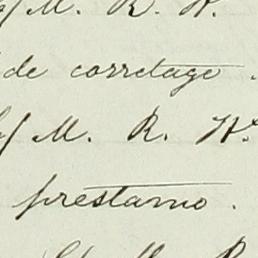 c/ M. R. W.
de corretage.
c/ M. R. W.
prestamo.